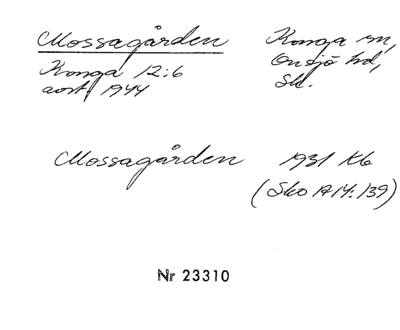 Mossagården Konga sn,
Konga 12:6 Onsjö hd,
avst. 1944 Sk.
Mossagården 1931 Kb
(Sko A14:139)
Nr 23310